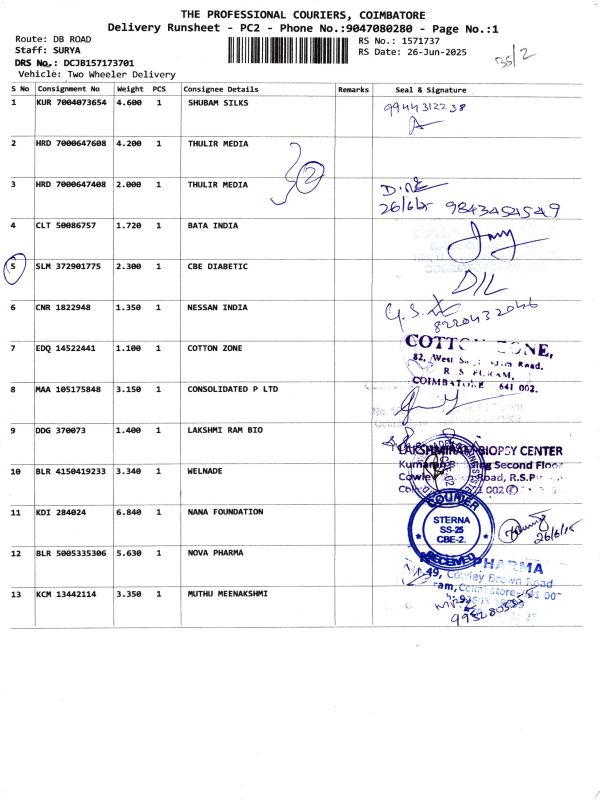 THE PROFESSIONAL COURIERS, COIMBATORE
Delivery Runsheet - PC2 - Phone No.:9047080280 - Page No.:1
Route: DB ROAD
Staff: SURYA
DRS No.: DCJB157173701
Vehicle: Two Wheeler Delivery
RS No.: 1571737
RS Date: 26-Jun-2025
35/2
S No Consignment No Weight PCS Consignee Details Remarks Seal & Signature
1 KUR 7004073654 4.600 1 SHUBAM SILKS 9944312238
2 HRD 7000647608 4.200 1 THULIR MEDIA
2
3 HRD 7000647408 2.000 1 THULIR MEDIA
26/6/25 9843454549
4 CLT 50086757 1.720 1 BATA INDIA
5 SLM 372901775 2.300 1 CBE DIABETIC
6 CNR 1822948 1.350 1 NESSAN INDIA
8220432046
7 EDQ 14522441 1.100 1 COTTON ZONE
COTTON ZONE,
82, West Road,
R S PURAM,
COIMBATORE 641 002.
8 MAA 105175848 3.150 1 CONSOLIDATED P LTD
9 DDG 370073 1.400 1 LAKSHMI RAM BIO
LAKSHMIRAM BIOPSY CENTER
Second Floor
Road, R.S.P
002
10 BLR 4150419233 3.340 1 WELNADE
11 KDI 284024 6.840 1 NANA FOUNDATION
COURIER
STERNA
SS-25
CBE-2.
RECEIVED
26/6/25
12 BLR 5005335306 5.630 1 NOVA PHARMA
PHARMA
49, Cowley Brown Road
13 KCM 13442114 3.350 1 MUTHU MEENAKSHMI